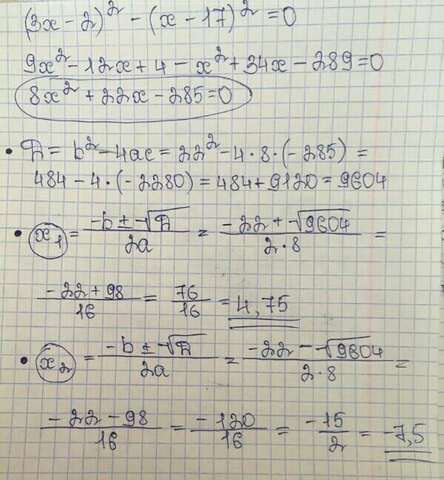 (3x - 2)² - (x - 17)² = 0
9x² - 12x + 4 - x² + 34x - 289 = 0
8x² + 22x - 285 = 0
• D = b² - 4ac = 22² - 4 · 8 · (-285) =
484 - 4 · (-2280) = 484 + 9120 = 9604
• x₁ = (-b ± √D)/(2a) = (-22 + √9604)/(2·8) =
(-22 + 98)/16 = 76/16 = 4,75
• x₂ = (-b ± √D)/(2a) = (-22 - √9604)/(2·8) =
(-22 - 98)/16 = (-120)/16 = (-15)/2 = -7,5